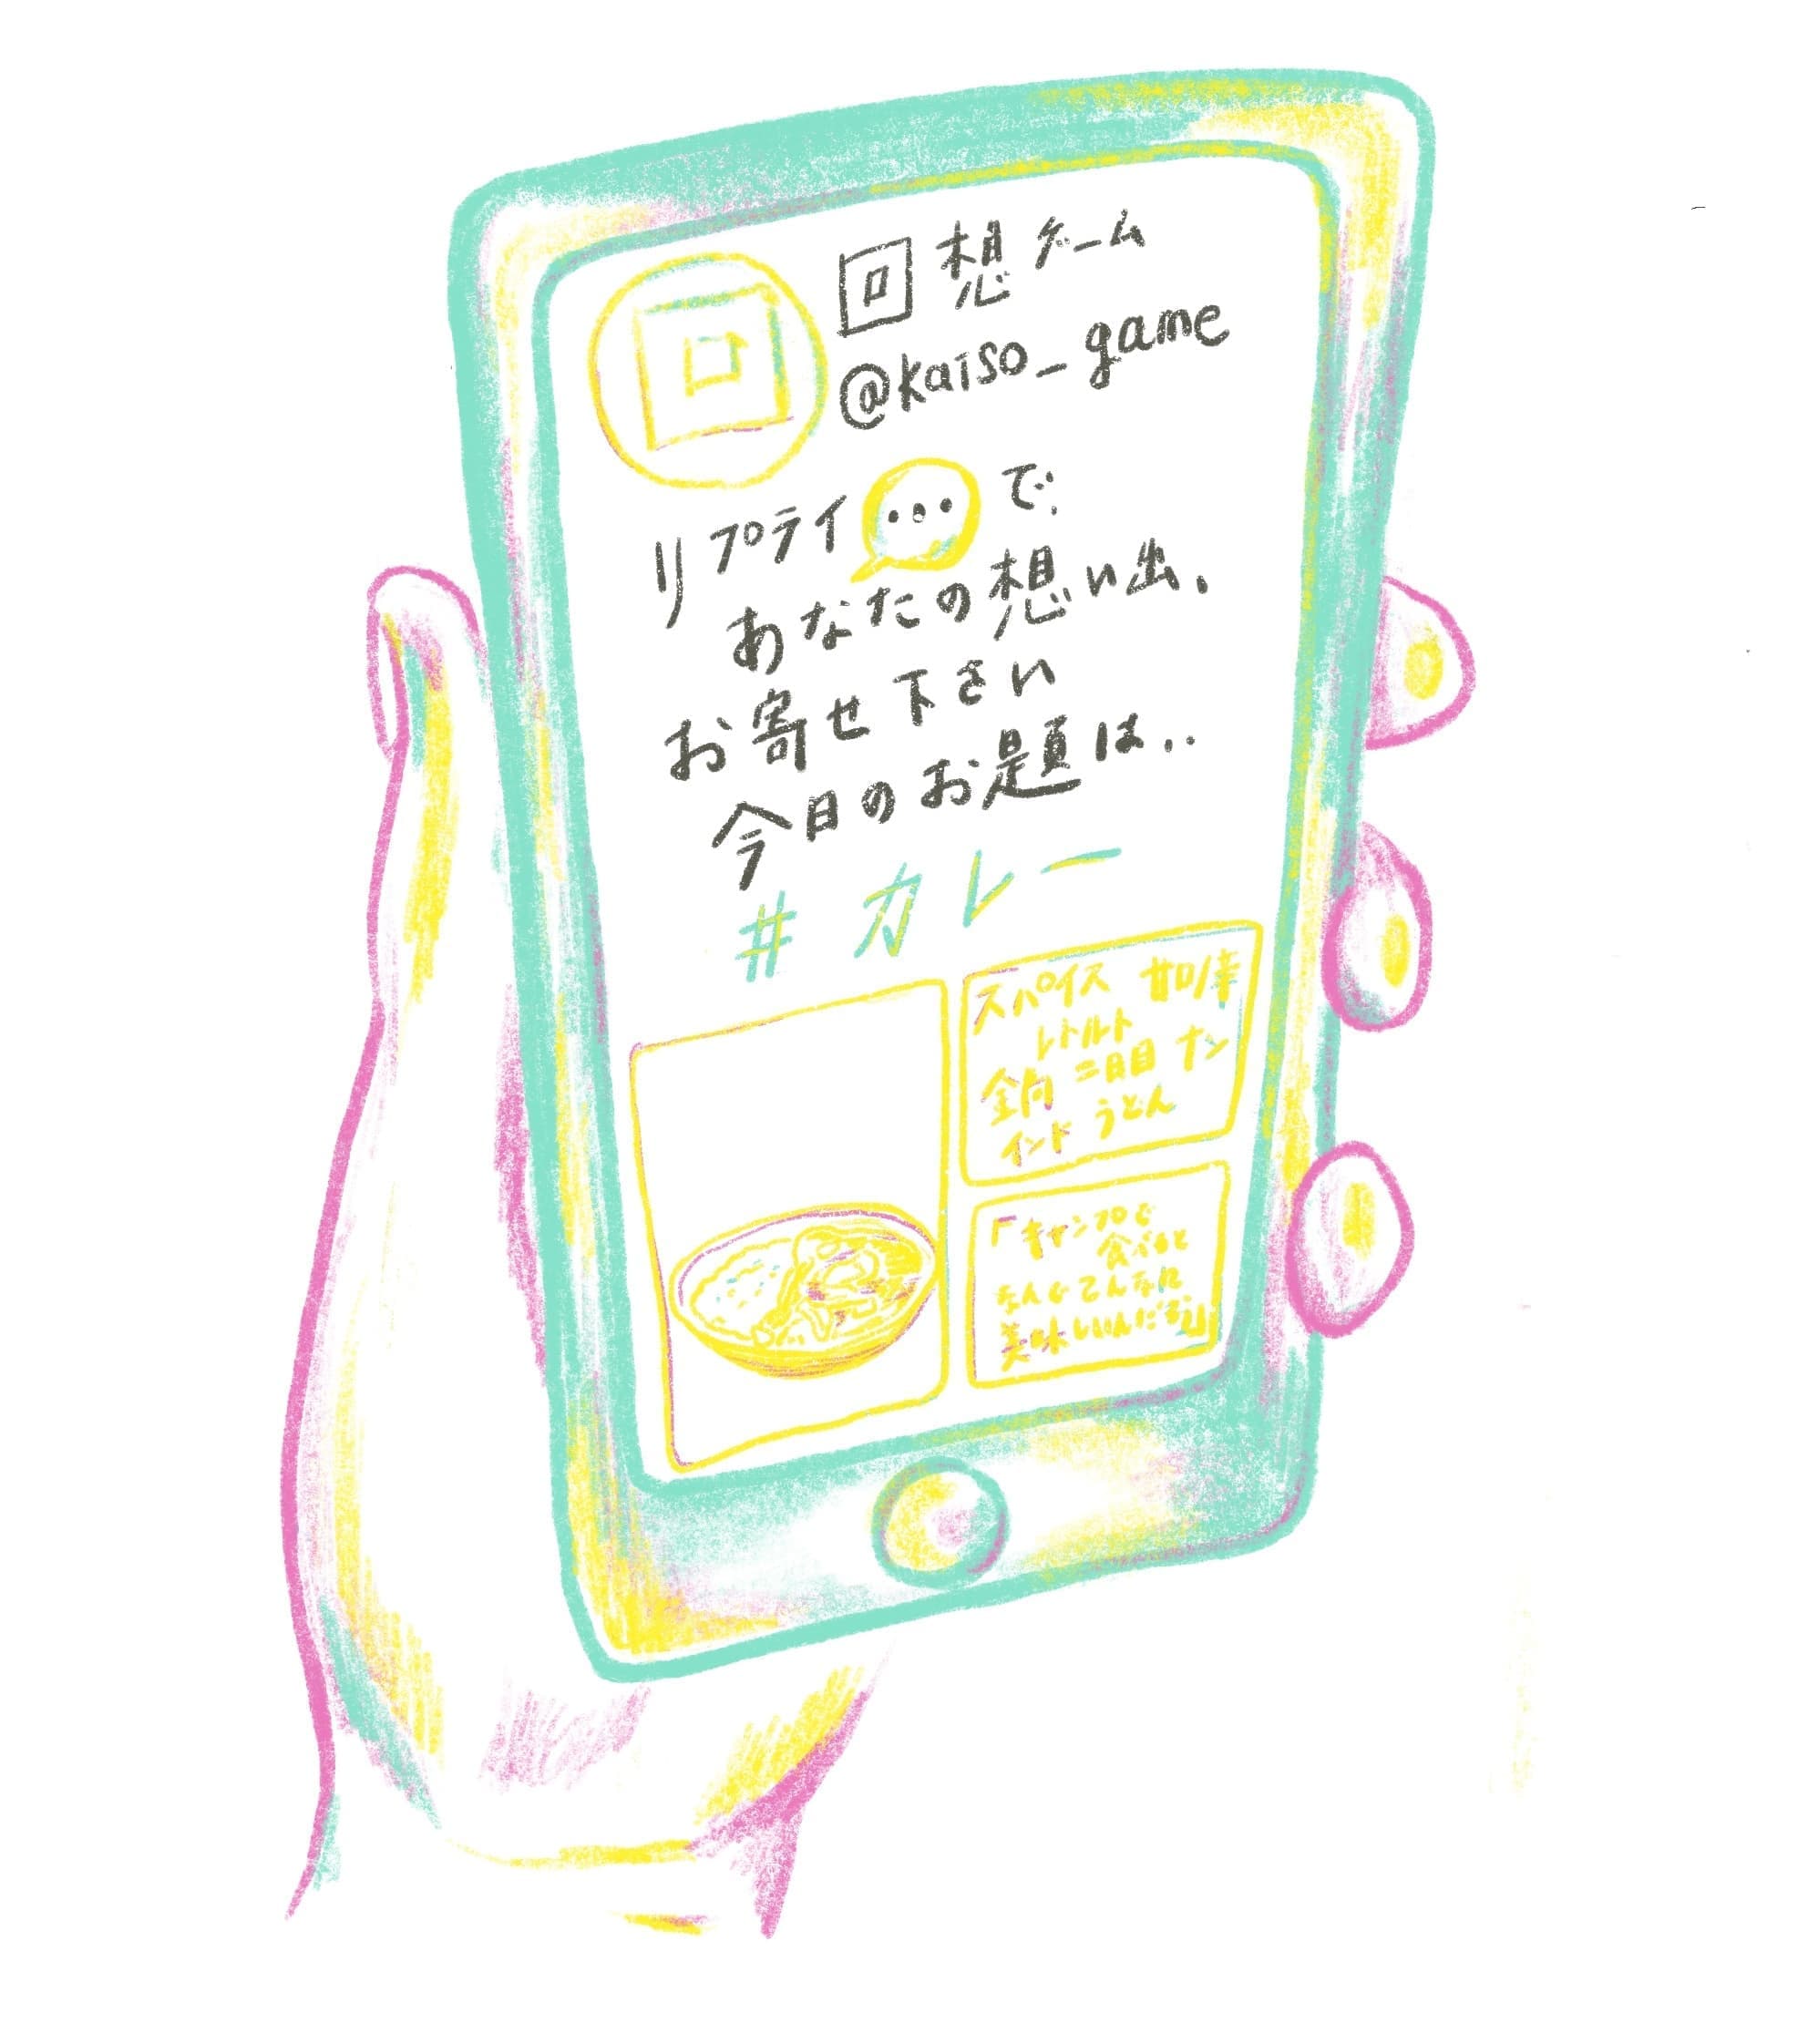 回
回想ゲーム
@kaiso_game
リプライ…で、
あなたの想い出、
お寄せ下さい
今日のお題は..
#カレー
スパイス 甘口/辛
レトルト
鍋 二日目 ナン
インド うどん
「キャンプで
食べると
なんでこんなに
美味しいんだろ」